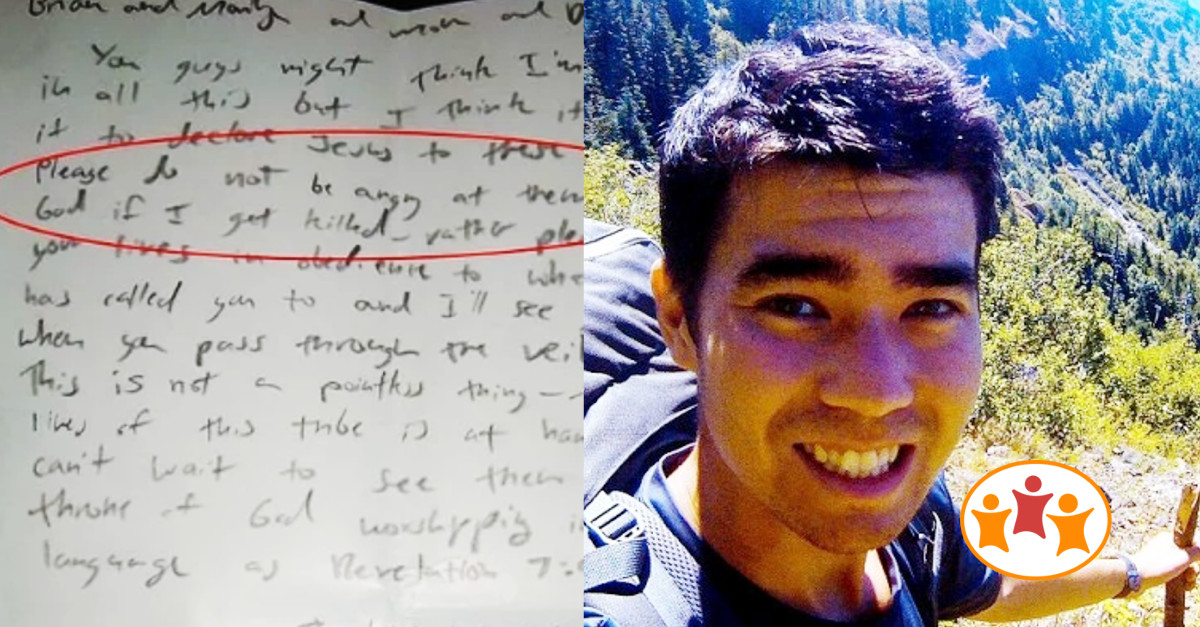 Brian and Marly and mom and D
You guys might think I'm
in all this but I think it
it to declare Jesus to these
Please do not be angry at them
God if I get killed - rather ple
your lives in obedience to wha
has called you to and I'll see
when you pass through the veil
This is not a pointless thing -
lives of this tribe is at han
can't wait to see them
throne of God worshipping i
language as Revelation 7: